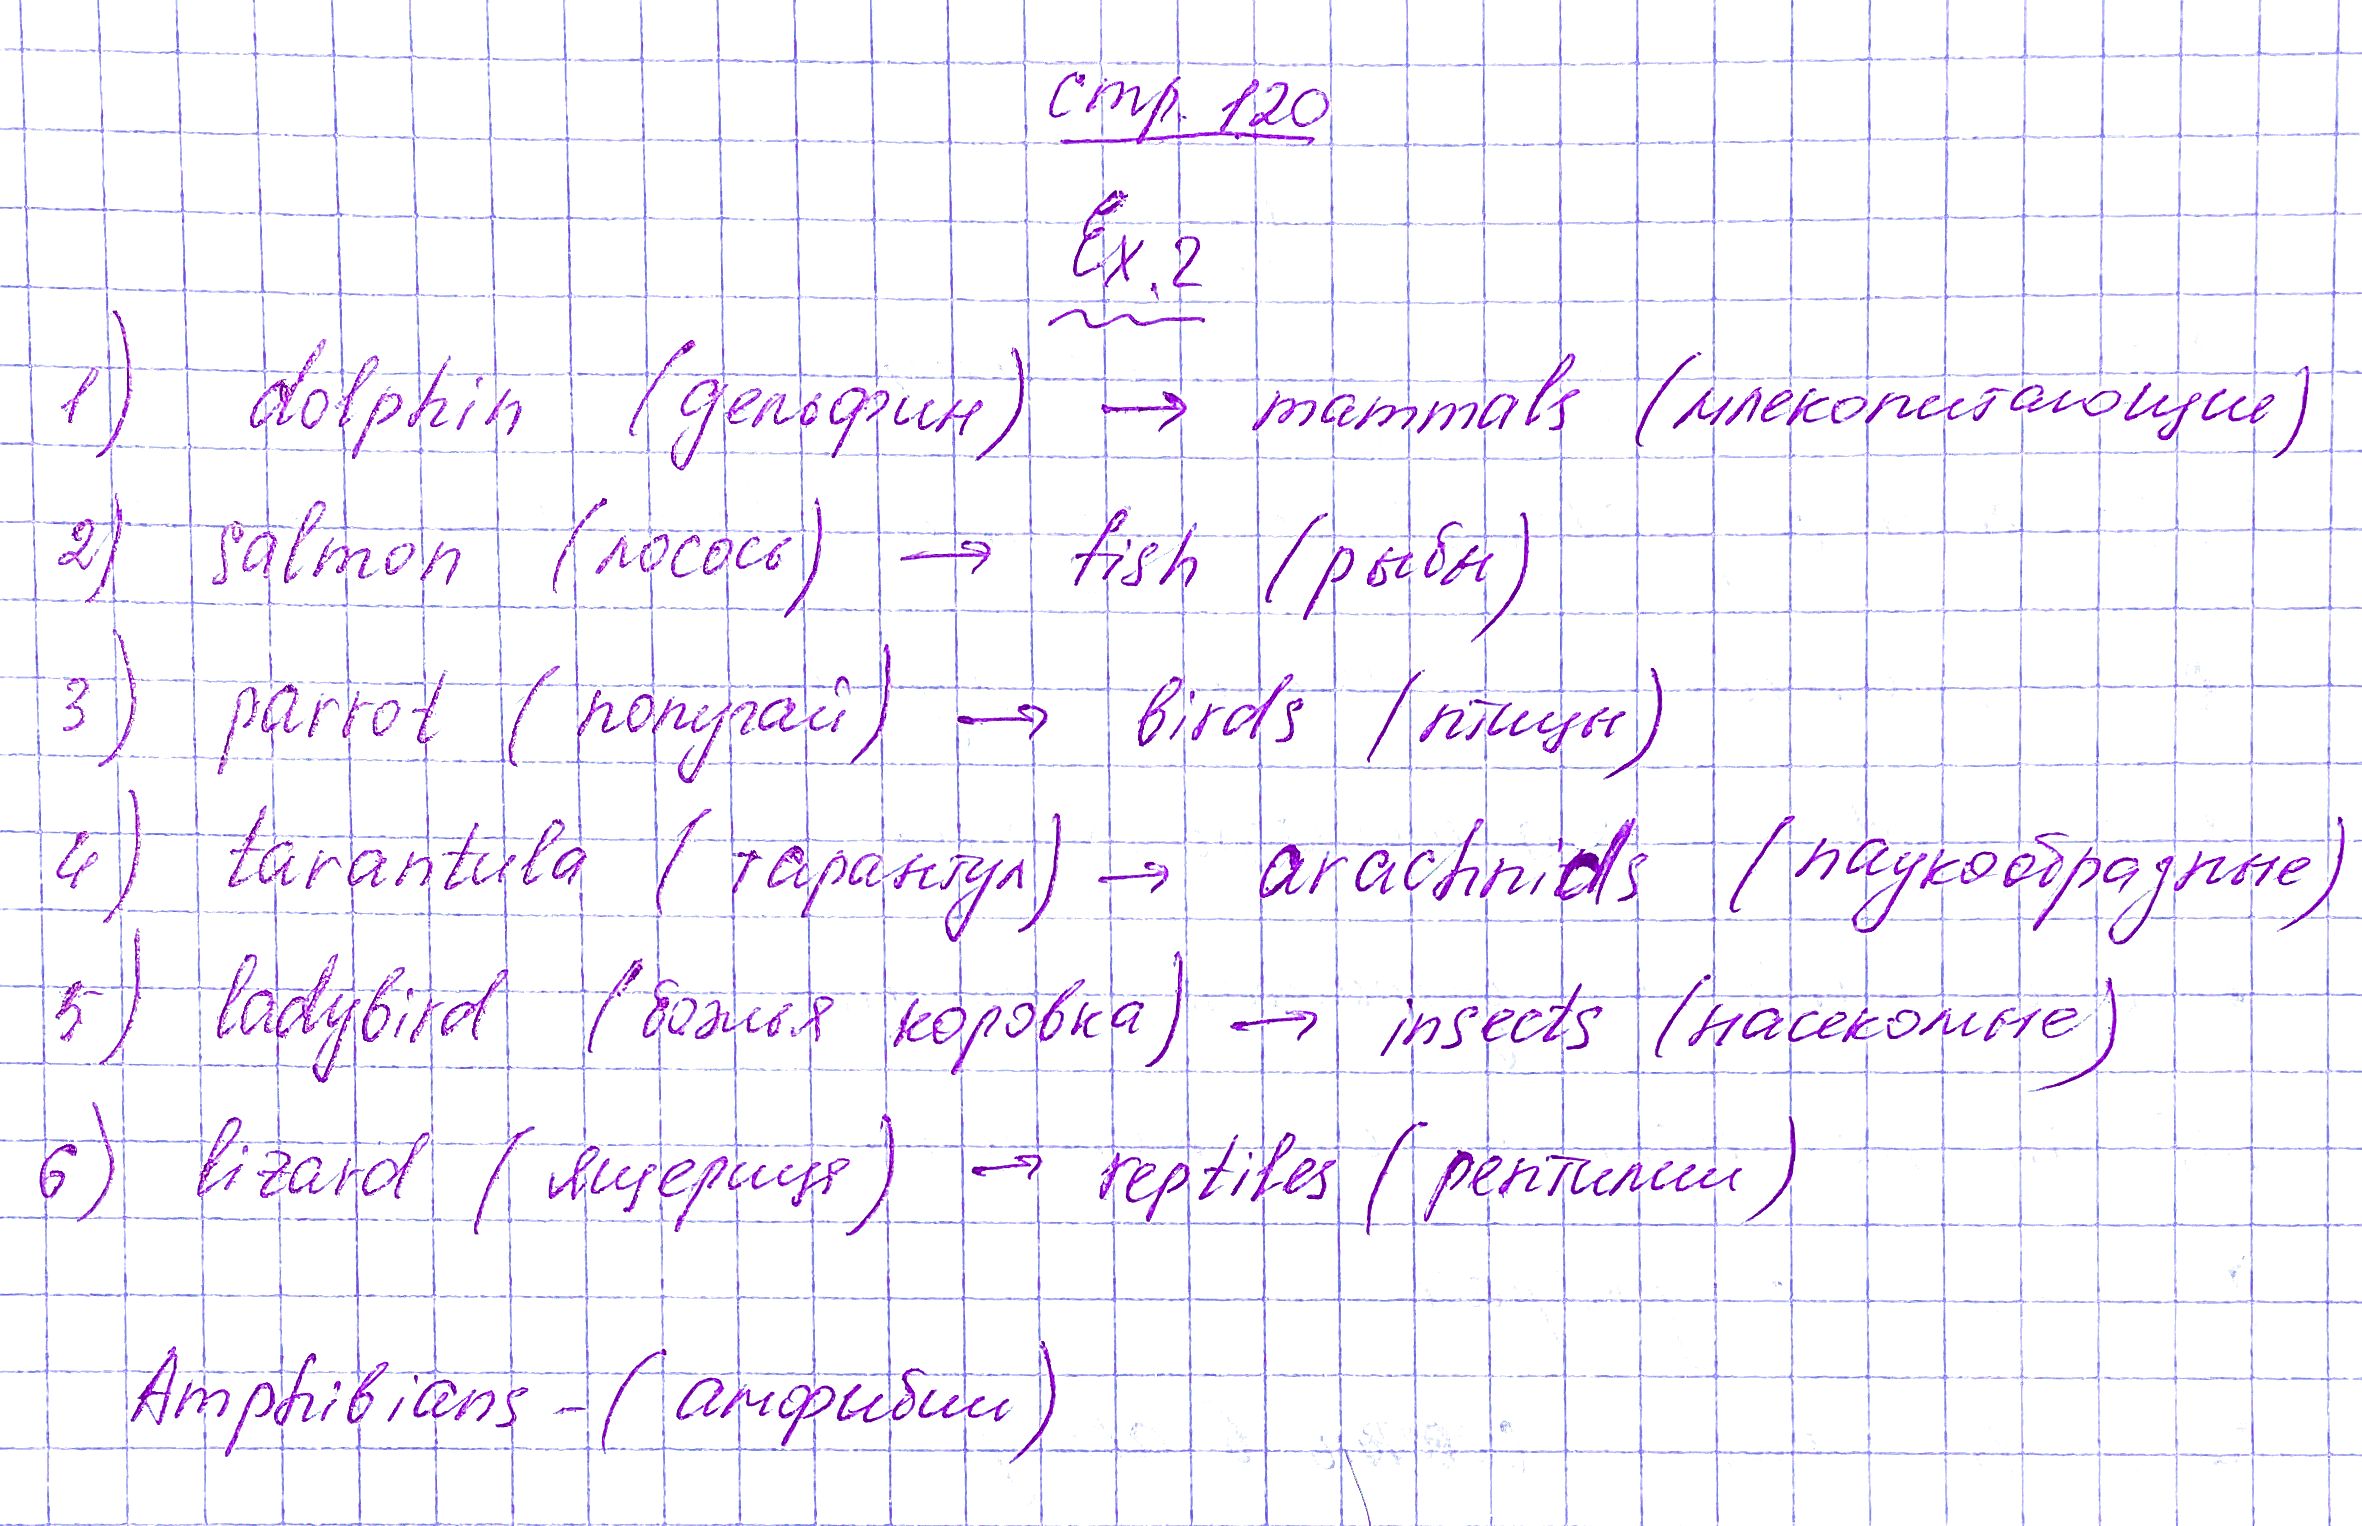 стр. 120
Ex. 2
1) dolphin (дельфин) → mammals (млекопитающие)
2) salmon (лосось) → fish (рыбы)
3) parrot (попугай) → birds (птицы)
4) tarantula (тарантул) → arachnids (паукообразные)
5) ladybird (божья коровка) → insects (насекомые)
6) lizard (ящерица) → reptiles (рептилии)
Amphibians - (амфибии)